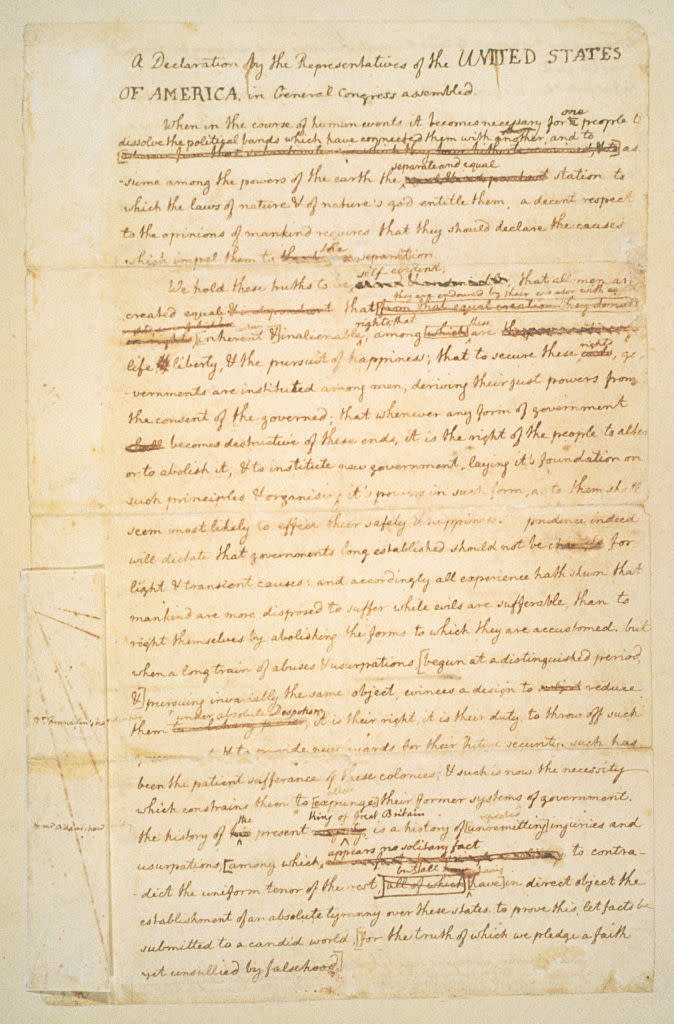 A Declaration by the Representatives of the UNITED STATES
OF AMERICA, in General Congress assembled.
When in the course of human events it becomes necessary for one people to
dissolve the political bands which have connected them with another, and to
as
separate and equal
-sume among the powers of the earth the station to
which the laws of nature & of nature's god entitle them, a decent respect
to the opinions of mankind requires that they should declare the causes
which impel them to the separation.
self-evident;
We hold these truths to be that all men are
they are endowed by their creator with
created equal & independent that [from that equal creation they derive
rights; that
[inherent & inalienable, among [which] these are
rights
life, & liberty, & the pursuit of happiness; that to secure these ends, go-
-vernments are instituted among men, deriving their just powers from
the consent of the governed; that whenever any form of government
shall becomes destructive of these ends, it is the right of the people to alter
or to abolish it, & to institute new government, laying it's foundation on
such principles & organising it's powers in such form, as to them shall
seem most likely to effect their safety & happiness. prudence indeed
will dictate that governments long established should not be change for
light & transient causes: and accordingly all experience hath shewn that
mankind are more disposed to suffer while evils are sufferable, than to
right themselves by abolishing the forms to which they are accustomed. but
when a long train of abuses & usurpations [begun at a distinguished period,
&] pursuing invariably the same object, evinces a design to subject reduce
under absolute Despotism
Dr. Franklin's handwriting
them it is their right, it is their duty, to throw off such
& to provide new guards for their future security. such has
been the patient sufferance of these colonies; & such is now the necessity
alter
which constrains them to [expunge] their former systems of government.
the King of Great Britain
Mr. Adams' hand
repeated
the history of his present majesty, is a history of [unremitting] injuries and
appears no solitary fact
usurpations, [among which, to contra-
but all having
-dict the uniform tenor of the rest, [all of which] [have] in direct object the
establishment of an absolute tyranny over these states. to prove this, let facts be
submitted to a candid world, [for the truth of which we pledge a faith
yet unsullied by falsehood.]